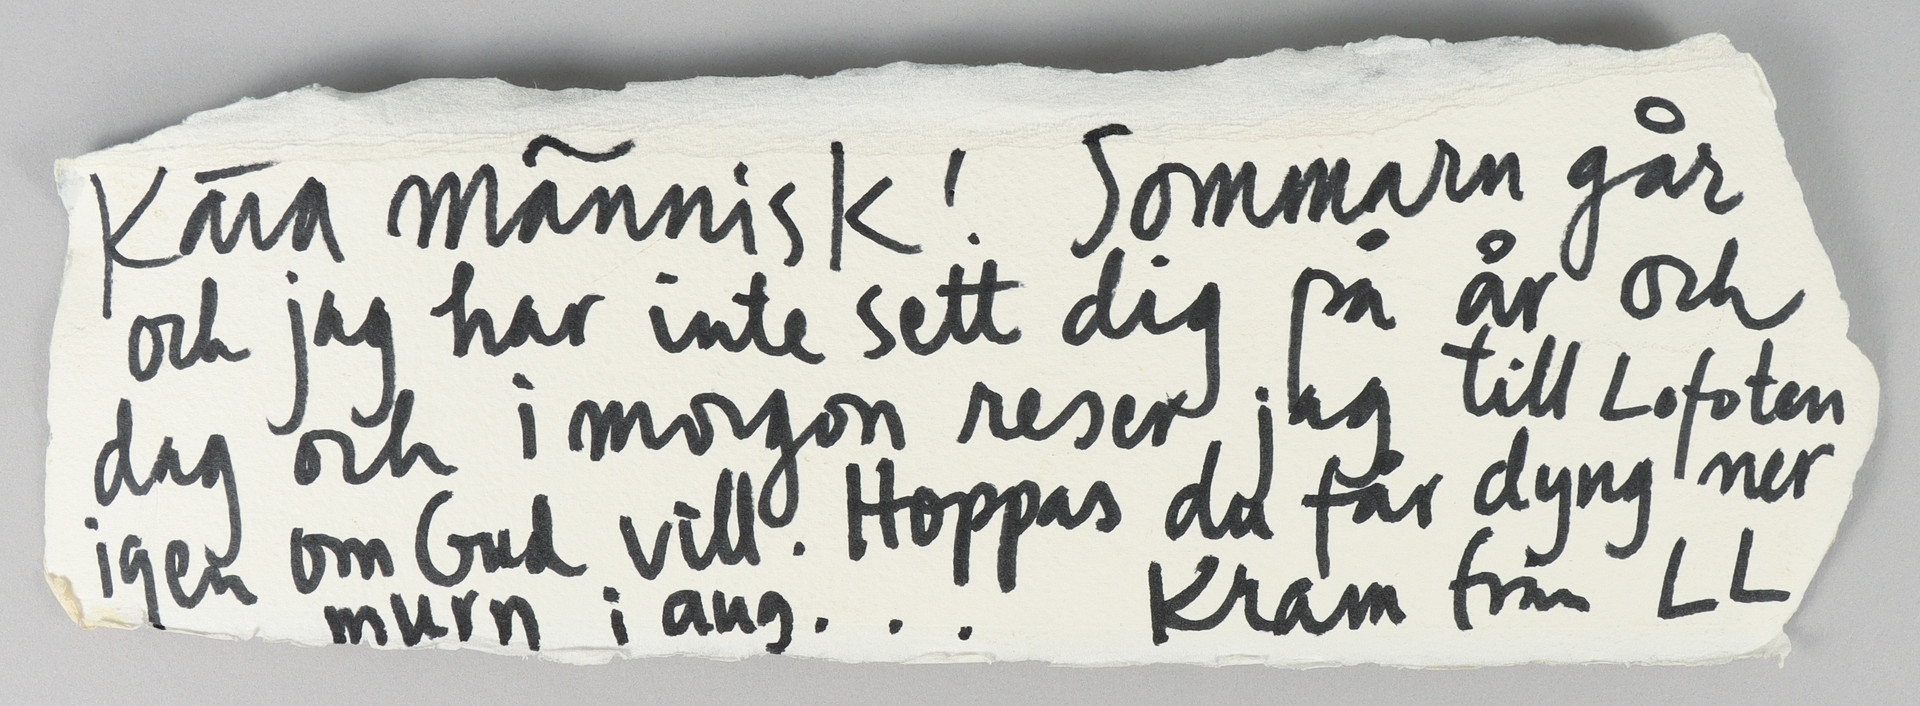 Kära människ! Sommarn går
och jag har inte sett dig på år och
dag och i morgon reser jag till Lofoten
igen om Gud vill. Hoppas du får dyng ner
murn i aug... Kram från LL